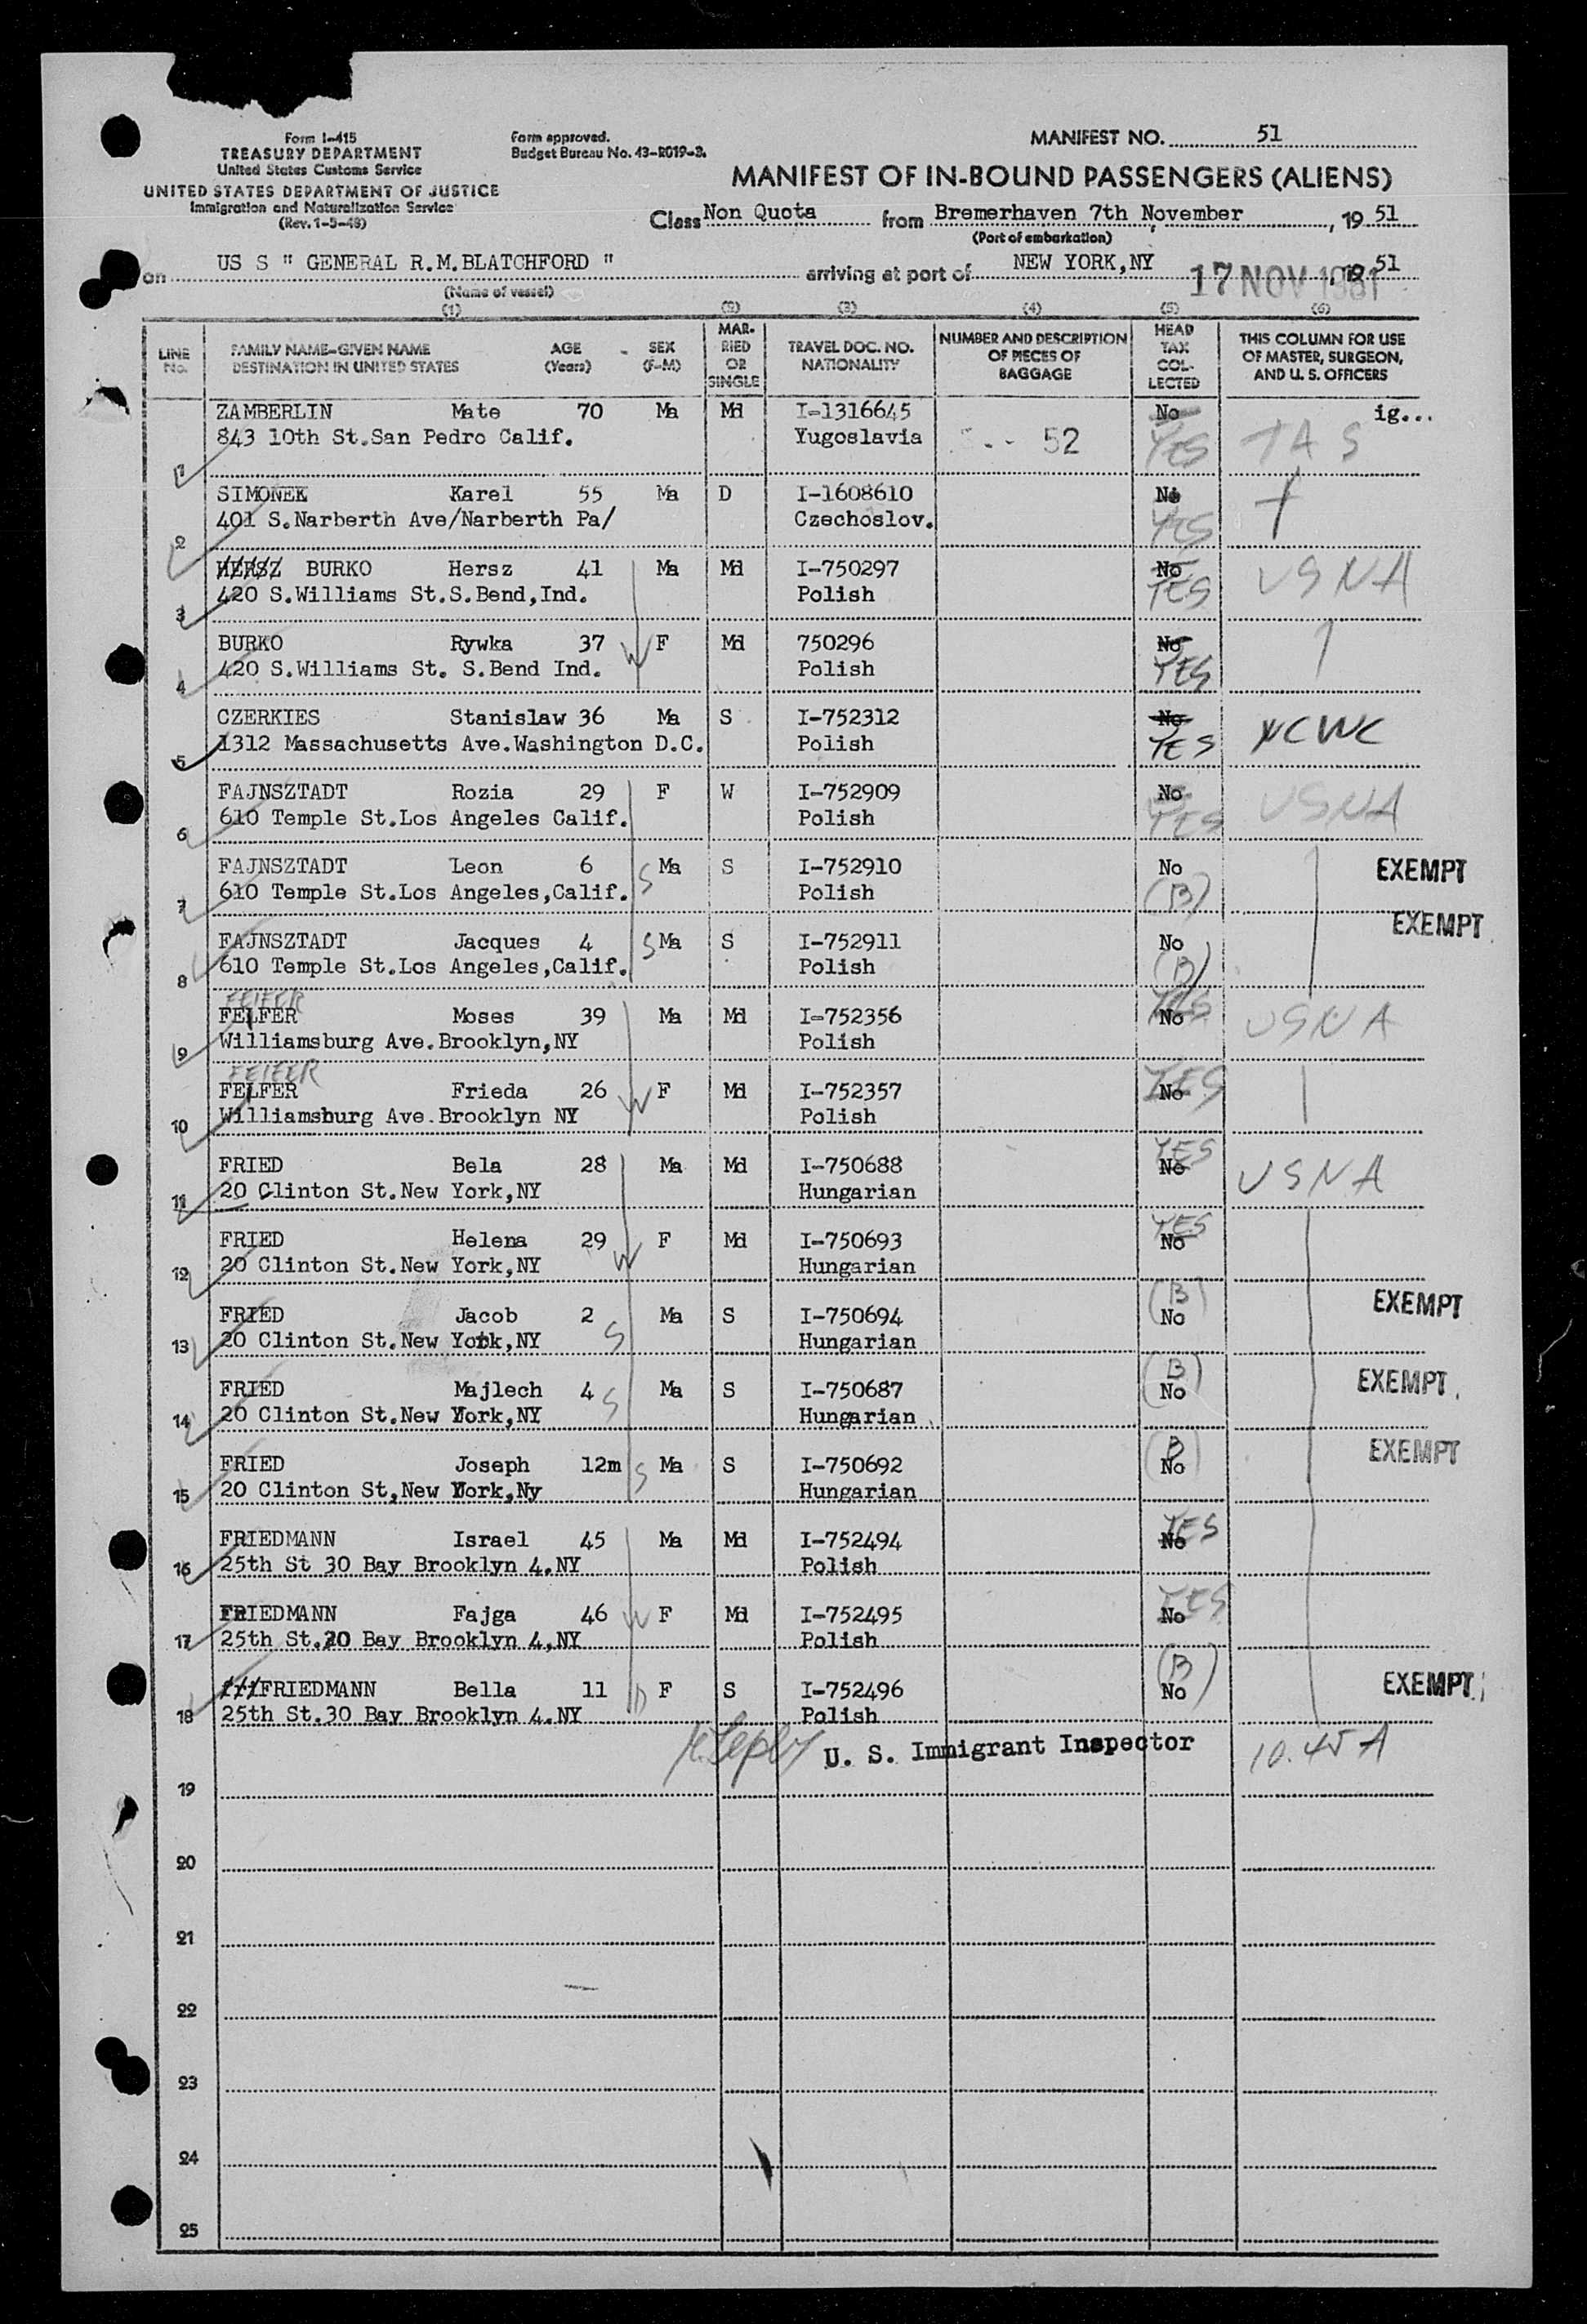 Form I-415
TREASURY DEPARTMENT
United States Customs Service
UNITED STATES DEPARTMENT OF JUSTICE
Immigration and Naturalization Service
(Rev. 1-5-48)
Form approved.
Budget Bureau No. 43-R019-3.
MANIFEST NO. 51
MANIFEST OF IN-BOUND PASSENGERS (ALIENS)
Class Non Quota from Bremerhaven 7th November, 19 51
(Port of embarkation)
on US S " GENERAL R.M.BLATCHFORD " arriving at port of NEW YORK,NY 17 NOV 1951 51
(Name of vessel)
(1) (2) (3) (4) (5) (6)
LINE No. FAMILY NAME-GIVEN NAME DESTINATION IN UNITED STATES AGE (Years) SEX (F-M) MARRIED OR SINGLE TRAVEL DOC. NO. NATIONALITY NUMBER AND DESCRIPTION OF PIECES OF BAGGAGE HEAD TAX COLLECTED THIS COLUMN FOR USE OF MASTER, SURGEON, AND U. S. OFFICERS
ZAMBERLIN Mate 70 Ma Md I-1316645 No ig...
1 843 10th St.San Pedro Calif. Yugoslavia 52 YES TAS
SIMONEK Karel 55 Ma D I-1608610 No
2 401 S.Narberth Ave/Narberth Pa/ Czechoslov. YES
HERSZ BURKO Hersz 41 Ma Md I-750297 No USNA
3 420 S.Williams St.S.Bend,Ind. Polish YES
BURKO Rywka 37 W F Md 750296 No
4 420 S.Williams St. S.Bend Ind. Polish YES
CZERKIES Stanislaw 36 Ma S I-752312 No NCWC
5 1312 Massachusetts Ave.Washington D.C. Polish YES
FAJNSZTADT Rozia 29 F W I-752909 No USNA
6 610 Temple St.Los Angeles Calif. Polish YES
FAJNSZTADT Leon 6 S Ma S I-752910 No EXEMPT
7 610 Temple St.Los Angeles,Calif. Polish (B)
FAJNSZTADT Jacques 4 S Ma S I-752911 No EXEMPT
8 610 Temple St.Los Angeles,Calif. Polish (B)
FEIFER YES
FELFER Moses 39 Ma Md I-752356 No USNA
9 Williamsburg Ave.Brooklyn,NY Polish
FEIFER YES
FELFER Frieda 26 W F Md I-752357 No
10 Williamsburg Ave.Brooklyn NY Polish
YES
FRIED Bela 28 Ma Md I-750688 No USNA
11 20 Clinton St.New York,NY Hungarian
YES
FRIED Helena 29 W F Md I-750693 No
12 20 Clinton St.New York,NY Hungarian
(B)
FRIED Jacob 2 S Ma S I-750694 No EXEMPT
13 20 Clinton St.New York,NY Hungarian
(B)
FRIED Majlech 4 S Ma S I-750687 No EXEMPT
14 20 Clinton St.New York,NY Hungarian
(B)
FRIED Joseph 12m S Ma S I-750692 No EXEMPT
15 20 Clinton St,New York,Ny Hungarian
YES
FRIEDMANN Israel 45 Ma Md I-752494 No
16 25th St 30 Bay Brooklyn 4.NY Polish
YES
FRIEDMANN Fajga 46 W F Md I-752495 No
17 25th St.20 Bay Brooklyn 4,NY Polish
(B)
FRIEDMANN Bella 11 D F S I-752496 No EXEMPT
18 25th St.30 Bay Brooklyn 4.NY Polish
U. S. Immigrant Inspector 10.45 A
19
20
21
22
23
24
25